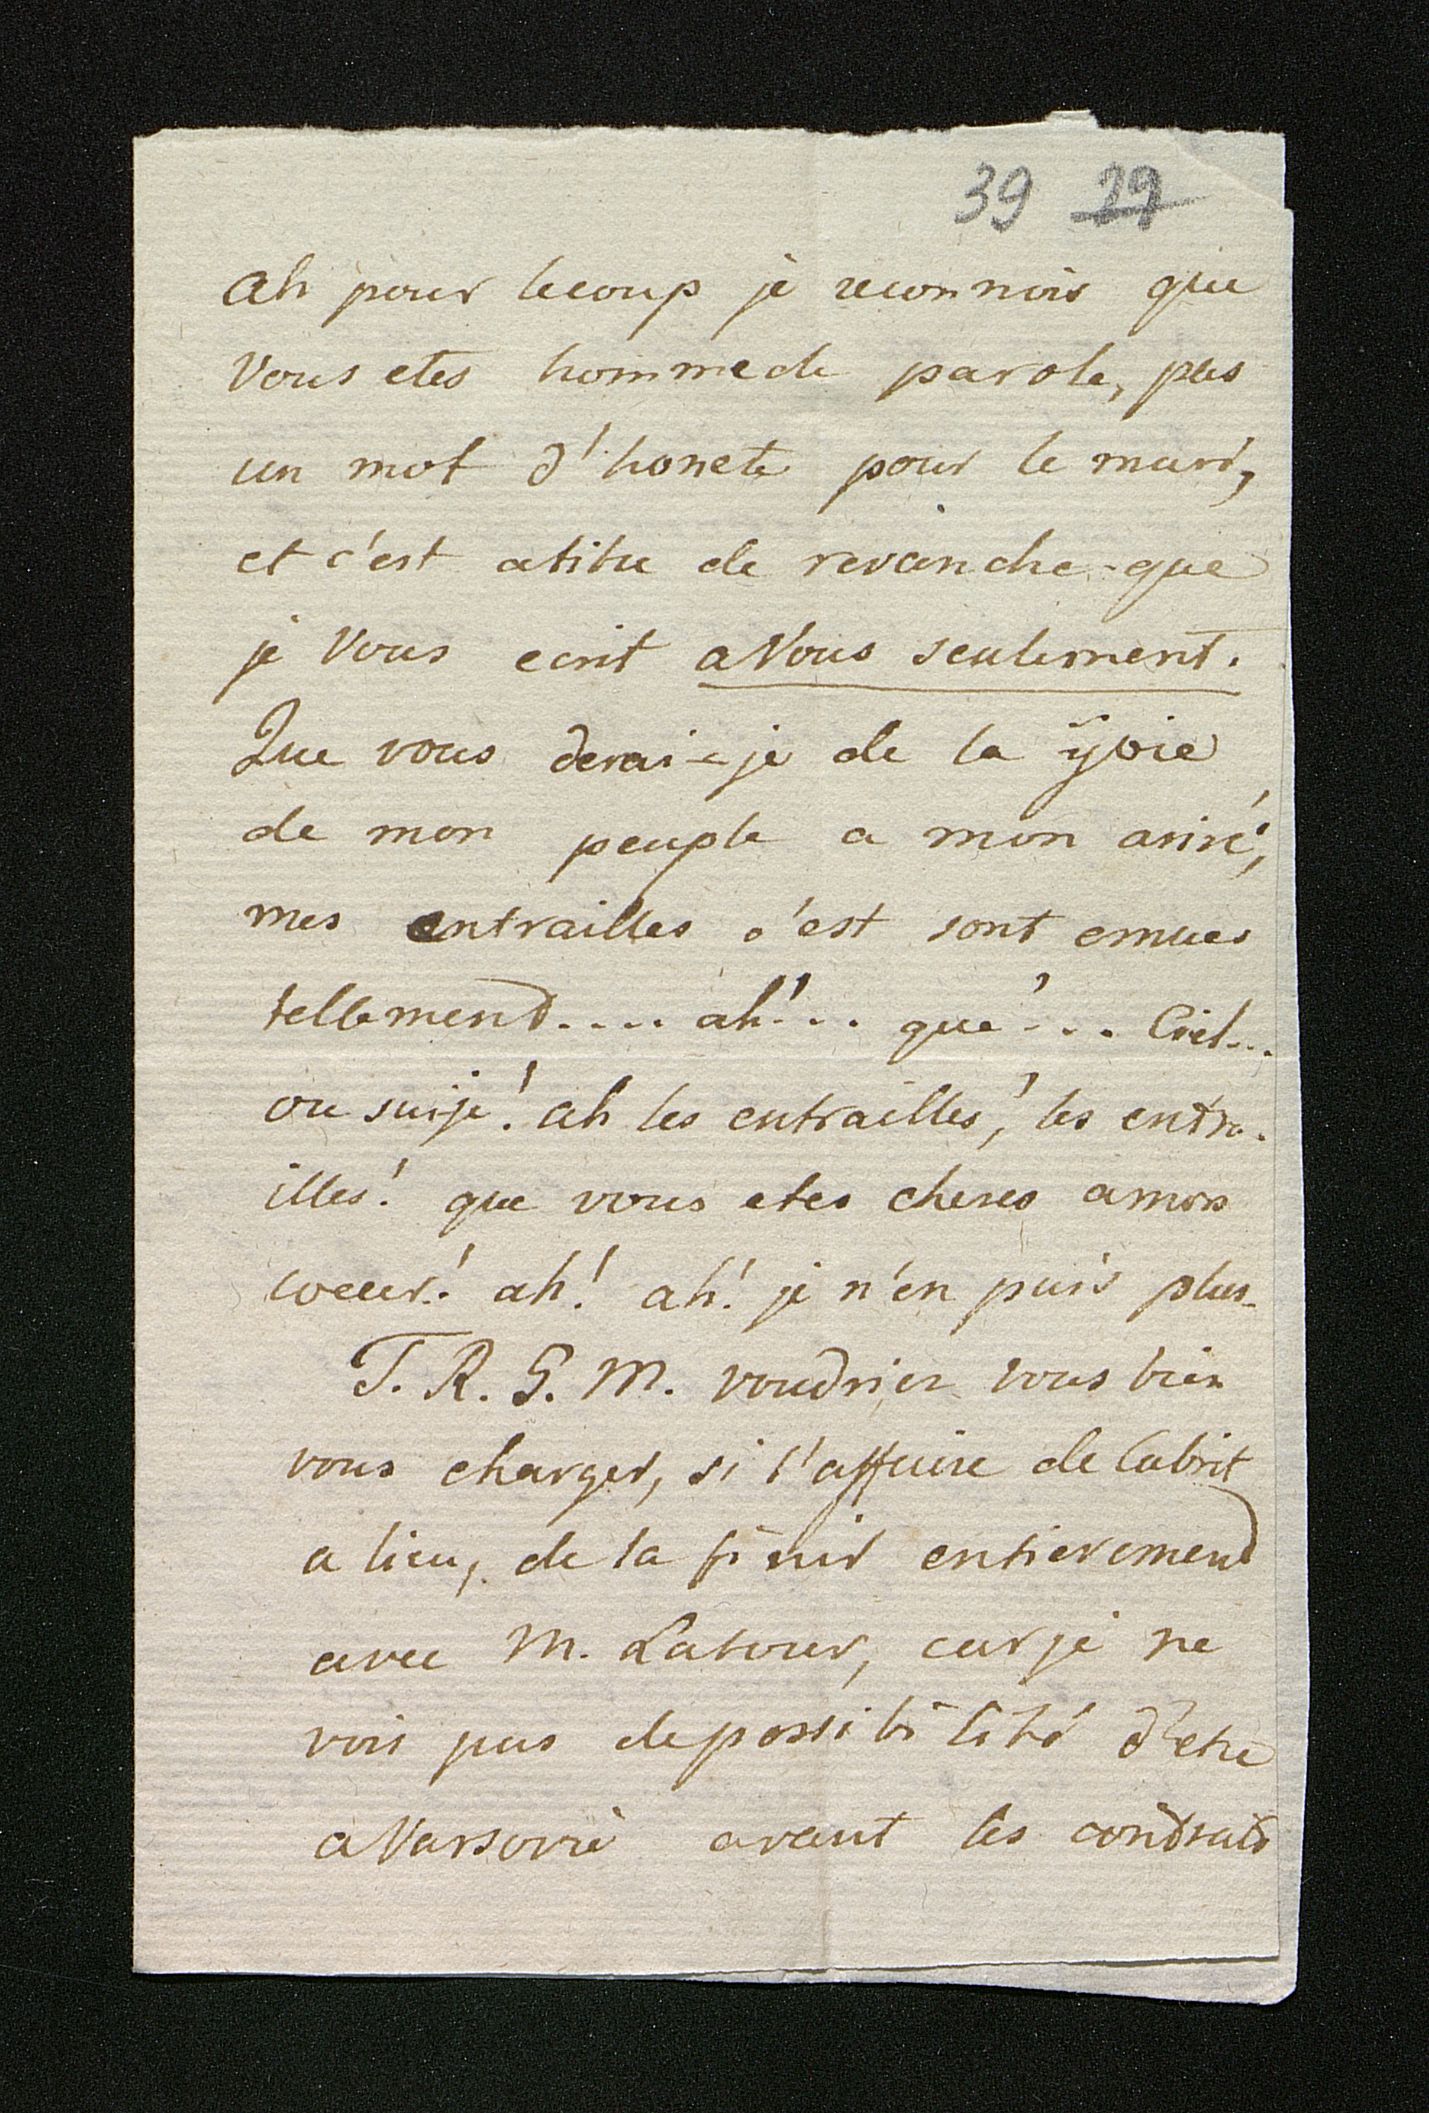 39 29
Ah pour lecoup je reconnois que
Vous etes hommede parole, pas
un mot d'honete pour le mari,
et c'est atitre de revanche que
je Vous ecrit aVous seulement.
Que vous derai-je de la joie
de mon peuple a mon arivé,
mes entrailles c'est sont emues
tellemend.... ah!... que!... Ciel...
ou suije! ah les entrailles! les entra-
illes! que vous etes cheres amon
coeur! ah! ah! je n'en puis plus
T. R. G. M. voudriez vous bien
vous charger, si l'affaire de Cabrit
a lieu, de la finir entieremend
avec M. Latour, car je ne
vois pas depossibilité d'etre
aVarsovie avant les contrats